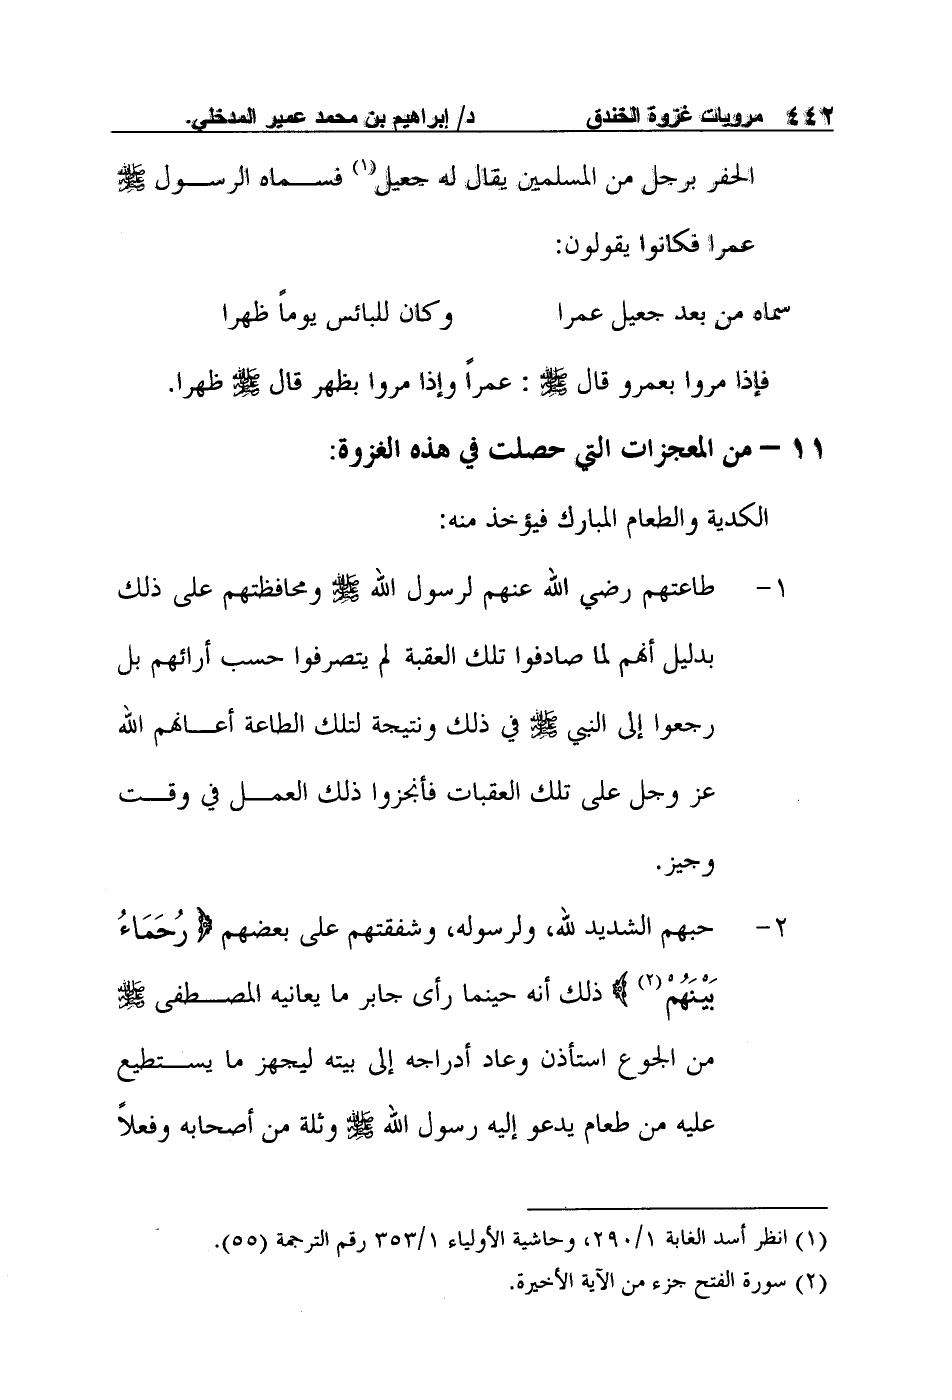 ٤٤٢ مرويات غزوة الخندق د/ إبراهيم بن محمد عمير المدخلي.
الحفر برجل من المسلمين يقال له جعيل(١) فسماه الرسول ﷺ
عمرا فكانوا يقولون:
سماه من بعد جعيل عمرا وكان للبائس يوماً ظهرا
فإذا مروا بعمرو قال ﷺ : عمراً وإذا مروا بظهر قال ﷺ ظهرا.
١١ – من المعجزات التي حصلت في هذه الغزوة:
الكدية والطعام المبارك فيؤخذ منه:
١- طاعتهم رضي الله عنهم لرسول الله ﷺ ومحافظتهم على ذلك
بدليل أنهم لما صادفوا تلك العقبة لم يتصرفوا حسب أرائهم بل
رجعوا إلى النبي ﷺ في ذلك ونتيجة لتلك الطاعة أعانهم الله
عز وجل على تلك العقبات فأنجزوا ذلك العمل في وقت
وجيز.
٢- حبهم الشديد لله، ولرسوله، وشفقتهم على بعضهم ﴿ رُحَمَاءُ
بَيْنَهُمْ(٢) ﴾ ذلك أنه حينما رأى جابر ما يعانيه المصطفى ﷺ
من الجوع استأذن وعاد أدراجه إلى بيته ليجهز ما يستطيع
عليه من طعام يدعو إليه رسول الله ﷺ وثلة من أصحابه وفعلاً
(١) انظر أسد الغابة ٢٩٠/١، وحاشية الأولياء ٣٥٣/١ رقم الترجمة (٥٥).
(٢) سورة الفتح جزء من الآية الأخيرة.